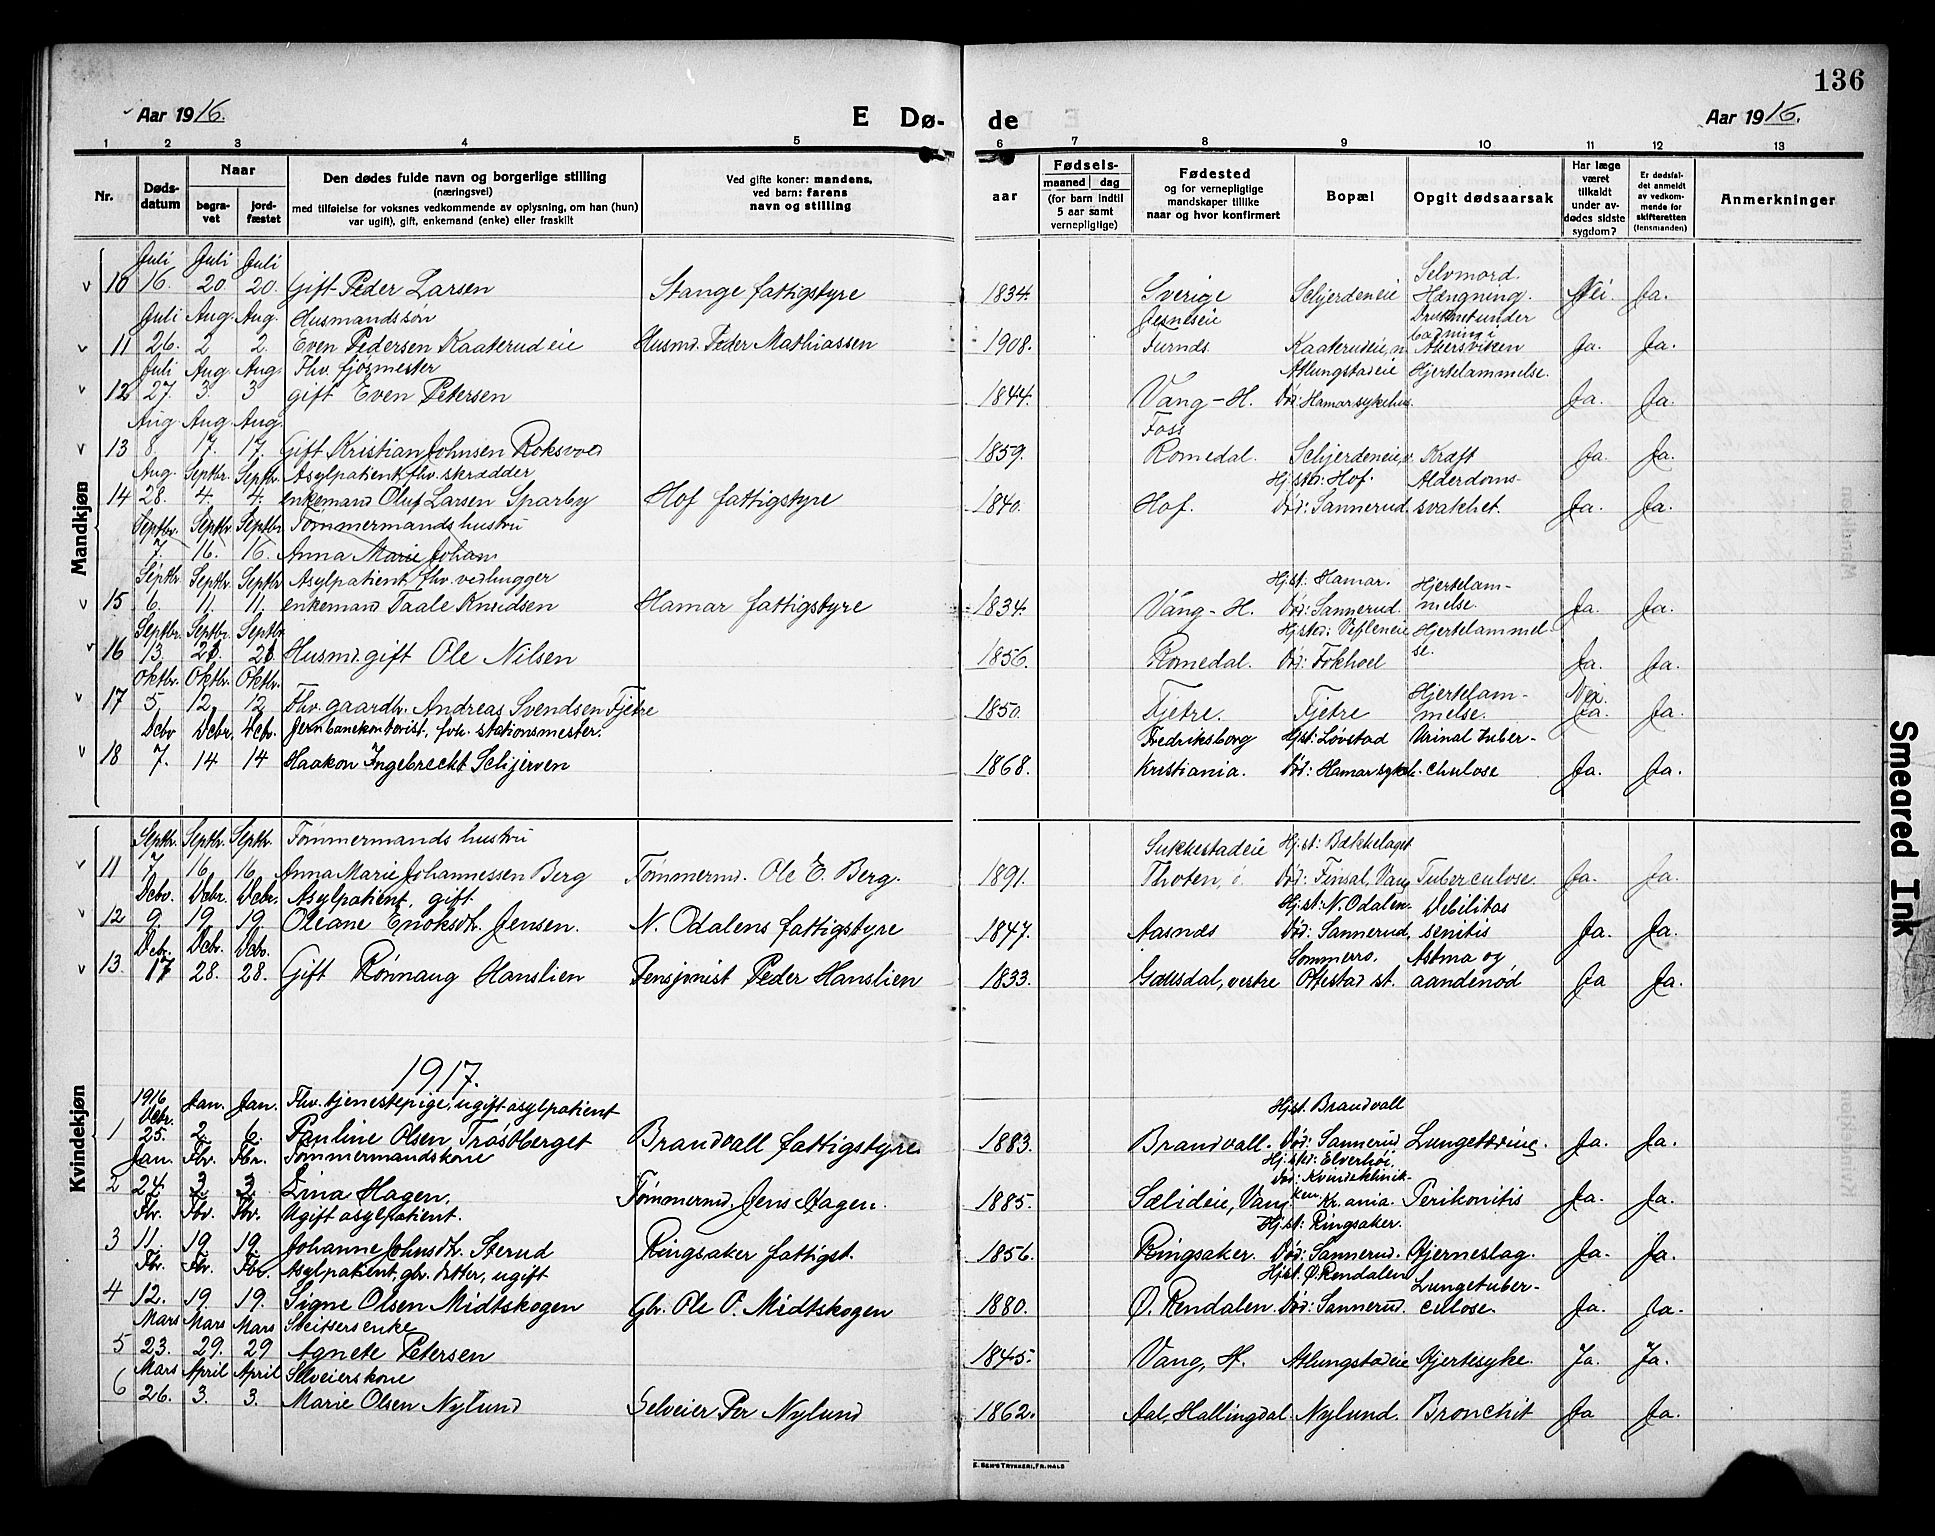 136
Aar 1916.
E Dø-
de
Aar 1916.
1 2 3 4 5 6 7 8 9 10 11 12 13
Nr.
Døds-
datum
Naar
begra-
vet
jord-
fæstet
Den dødes fulde navn og borgerlige stilling
(næringsvei)
med tilføielse for voksnes vedkommende av oplysning, om han (hun)
var ugift, gift, enkemand (enke) eller fraskilt
Ved gifte koner: mandens,
ved barn: farens
navn og stilling
aar
Fødsels-
maaned dag
(for barn indtil
5 aar samt
vernepligtige)
Fødested
og for vernepligtige
mandskaper tillike
naar og hvor konfirmert
Bopæl
Opgit dødsaarsak
Har læge
været
tilkaldt
under av-
dødes sidste
sygdom?
Er dødsfal-
det anmeldt
av vedkom-
mende for
skifteretten
(lensmanden)
Anmerkninger
Mandkjøn
Juli Juli Juli Selvmord.
v 10 16. 20 20. Gift Peder Larsen Stange fattigstyre 1834. Sverige Schjerdeneie Hængning. Nei. Ja.
Juli Aug. Aug. Husmandssøn Jesneseie Druknet under
v 11 26. 2 2. Even Pedersen Kaaterudeie Husmd. Peder Mathiassen 1908. Furnds Kaaterudeie, n. badning i Akersviken Ja. Ja.
Juli Aug. Aug. Fhv. fjøsmester Atlungstadeie Hjertelammelse.
v 12 27. 3. 3 gift Even Petersen 1844. Vang-H. Død: Hamar sykehus. Ja. Ja.
Aug. Aug. Aug. Foss
v 13 8. 17. 17. Gift Kristian Johnsen Roksvold 1859. Romedal. Schjerdeneie, v. Kræft Ja. Ja.
Aug. Septbr. Septbr. Asylpatient, fhv. skrædder Hjsted: Hof. Alderdoms-
v 14 28. 4. 4. enkemand Oluf Larsen Sparby Hof fattigstyre 1840. Hof. Død: Sannerud. svakhet. Ja. Ja.
Septbr. Septbr. Septbr. Tømmermands hustru
7. 16. 16. Anna Marie Johan
Septbr. Septbr. Septbr. Asylpatient fhv. vedhugger Hjst. Hamar. Hjertelam-
v 15 6. 11. 11. enkemand Taale Knudsen Hamar fattigstyre 1834. Vang-H. Død: Sannerud. melse. Ja. Ja.
Septbr. Septbr. Septbr. Hjsted: Vefleneie Hjertelammel-
v 16 13. 23. 23. Husmd. gift Ole Nilsen 1856. Romedal. Død: Fokhoel se. Ja. Ja.
Oktbr. Oktbr. Oktbr. Hjertelam- Nei.
v 17 5. 12. 12 Fhv. gaardbr. Andreas Svendsen Tjetre 1850. Tjetre. Tjetre melse. Ja. Ja.
Dcbr Dcbr. Dcbr. Jernbanekontorist, fvh. stationsmester. Fredriksborg Hjst: Løvstad Urinal tuber-
v 18 7. 14 14 Haakon Ingebrecht Schjerven 1868. Kristiania. Død: Hamar sykeh. chulose Ja. Ja.
Kvindekjøn
Septbr. Septbr. Septbr. Tømmermands hustru Sukkestadeie Hjst: Bækkelaget
v 11 7 16 16 Anna Marie Johannessen Berg Tømmermd. Ole E. Berg. 1891. Thoten, ø. Død: Finsal, Vang Tuberculose. Ja. Ja.
Dcbr. Dcbr. Dcbr. Asylpatient, gift Hjst: N. Odalen. Debilitas
v 12 9. 19 19. Oleane Enoksdtr. Jensen. N. Odalens fattigstyre 1847. Aasnæs Død: Sannerud. senilis Ja. Ja.
Dcbr. Dcbr. Dcbr. Sommerro. Astma og
v 13. 17 28. 28. Gift Rønnaug Hanslien Pensjonist Peder Hanslien 1833. Gausdal, vestre Ottestad st. aandenød Ja Ja.
1917.
1916 Dcbr. Jan. Jan. Fhv. tjenestepige, ugift asylpatient Hjst. Brandvall
1 25. 2. 6. Pauline Olsen Trøsberget Brandvall fattigstyre. 1883. Brandvall. Død: Sannerud Lungetæring. Ja. Ja.
Jan. Fbr. Fbr. Tømmermandskone Hjsted: Elverhøi. Død: Kvindeklinik-
2 24. 3. 3. Lina Hagen. Tømmermd. Jens Hagen. 1885. Sælideie, Vang. ken, Kr.ania. Peritonitis Ja. Ja.
Fbr. Fbr. Fbr. Ugift asylpatient. Hjst: Ringsaker.
3 11. 19 19. Johanne Johnsdtr. Sterud Ringsaker fattigst. 1856. Ringsaker. Død: Sannerud. Hjerneslag. Ja. Ja.
Fbr. Fbr. Fbr. Asylpatient, gbr. datter, ugift Hjst. Ø. Rendalen Lungetuber-
4 12. 19. 19. Signe Olsen Midtskogen Gbr. Ole P. Midtskogen 1880. Ø. Rendalen Død: Sannerud. culose. Ja. Ja.
Mars Mars Mars Sveitsersenke
5 23. 29. 29 Agnete Petersen 1845. Vang, H. Atlungstadeie Hjertesyke. Ja. Ja.
Mars April April Selveierskone
6 26. 3. 3. Marie Olsen Nylund Selveier Per Nylund 1862. Aal, Hallingdal. Nylund. Bronchit Ja Ja.
E. SEM'S TRYKKERI, FR. HALD
Smeared Ink